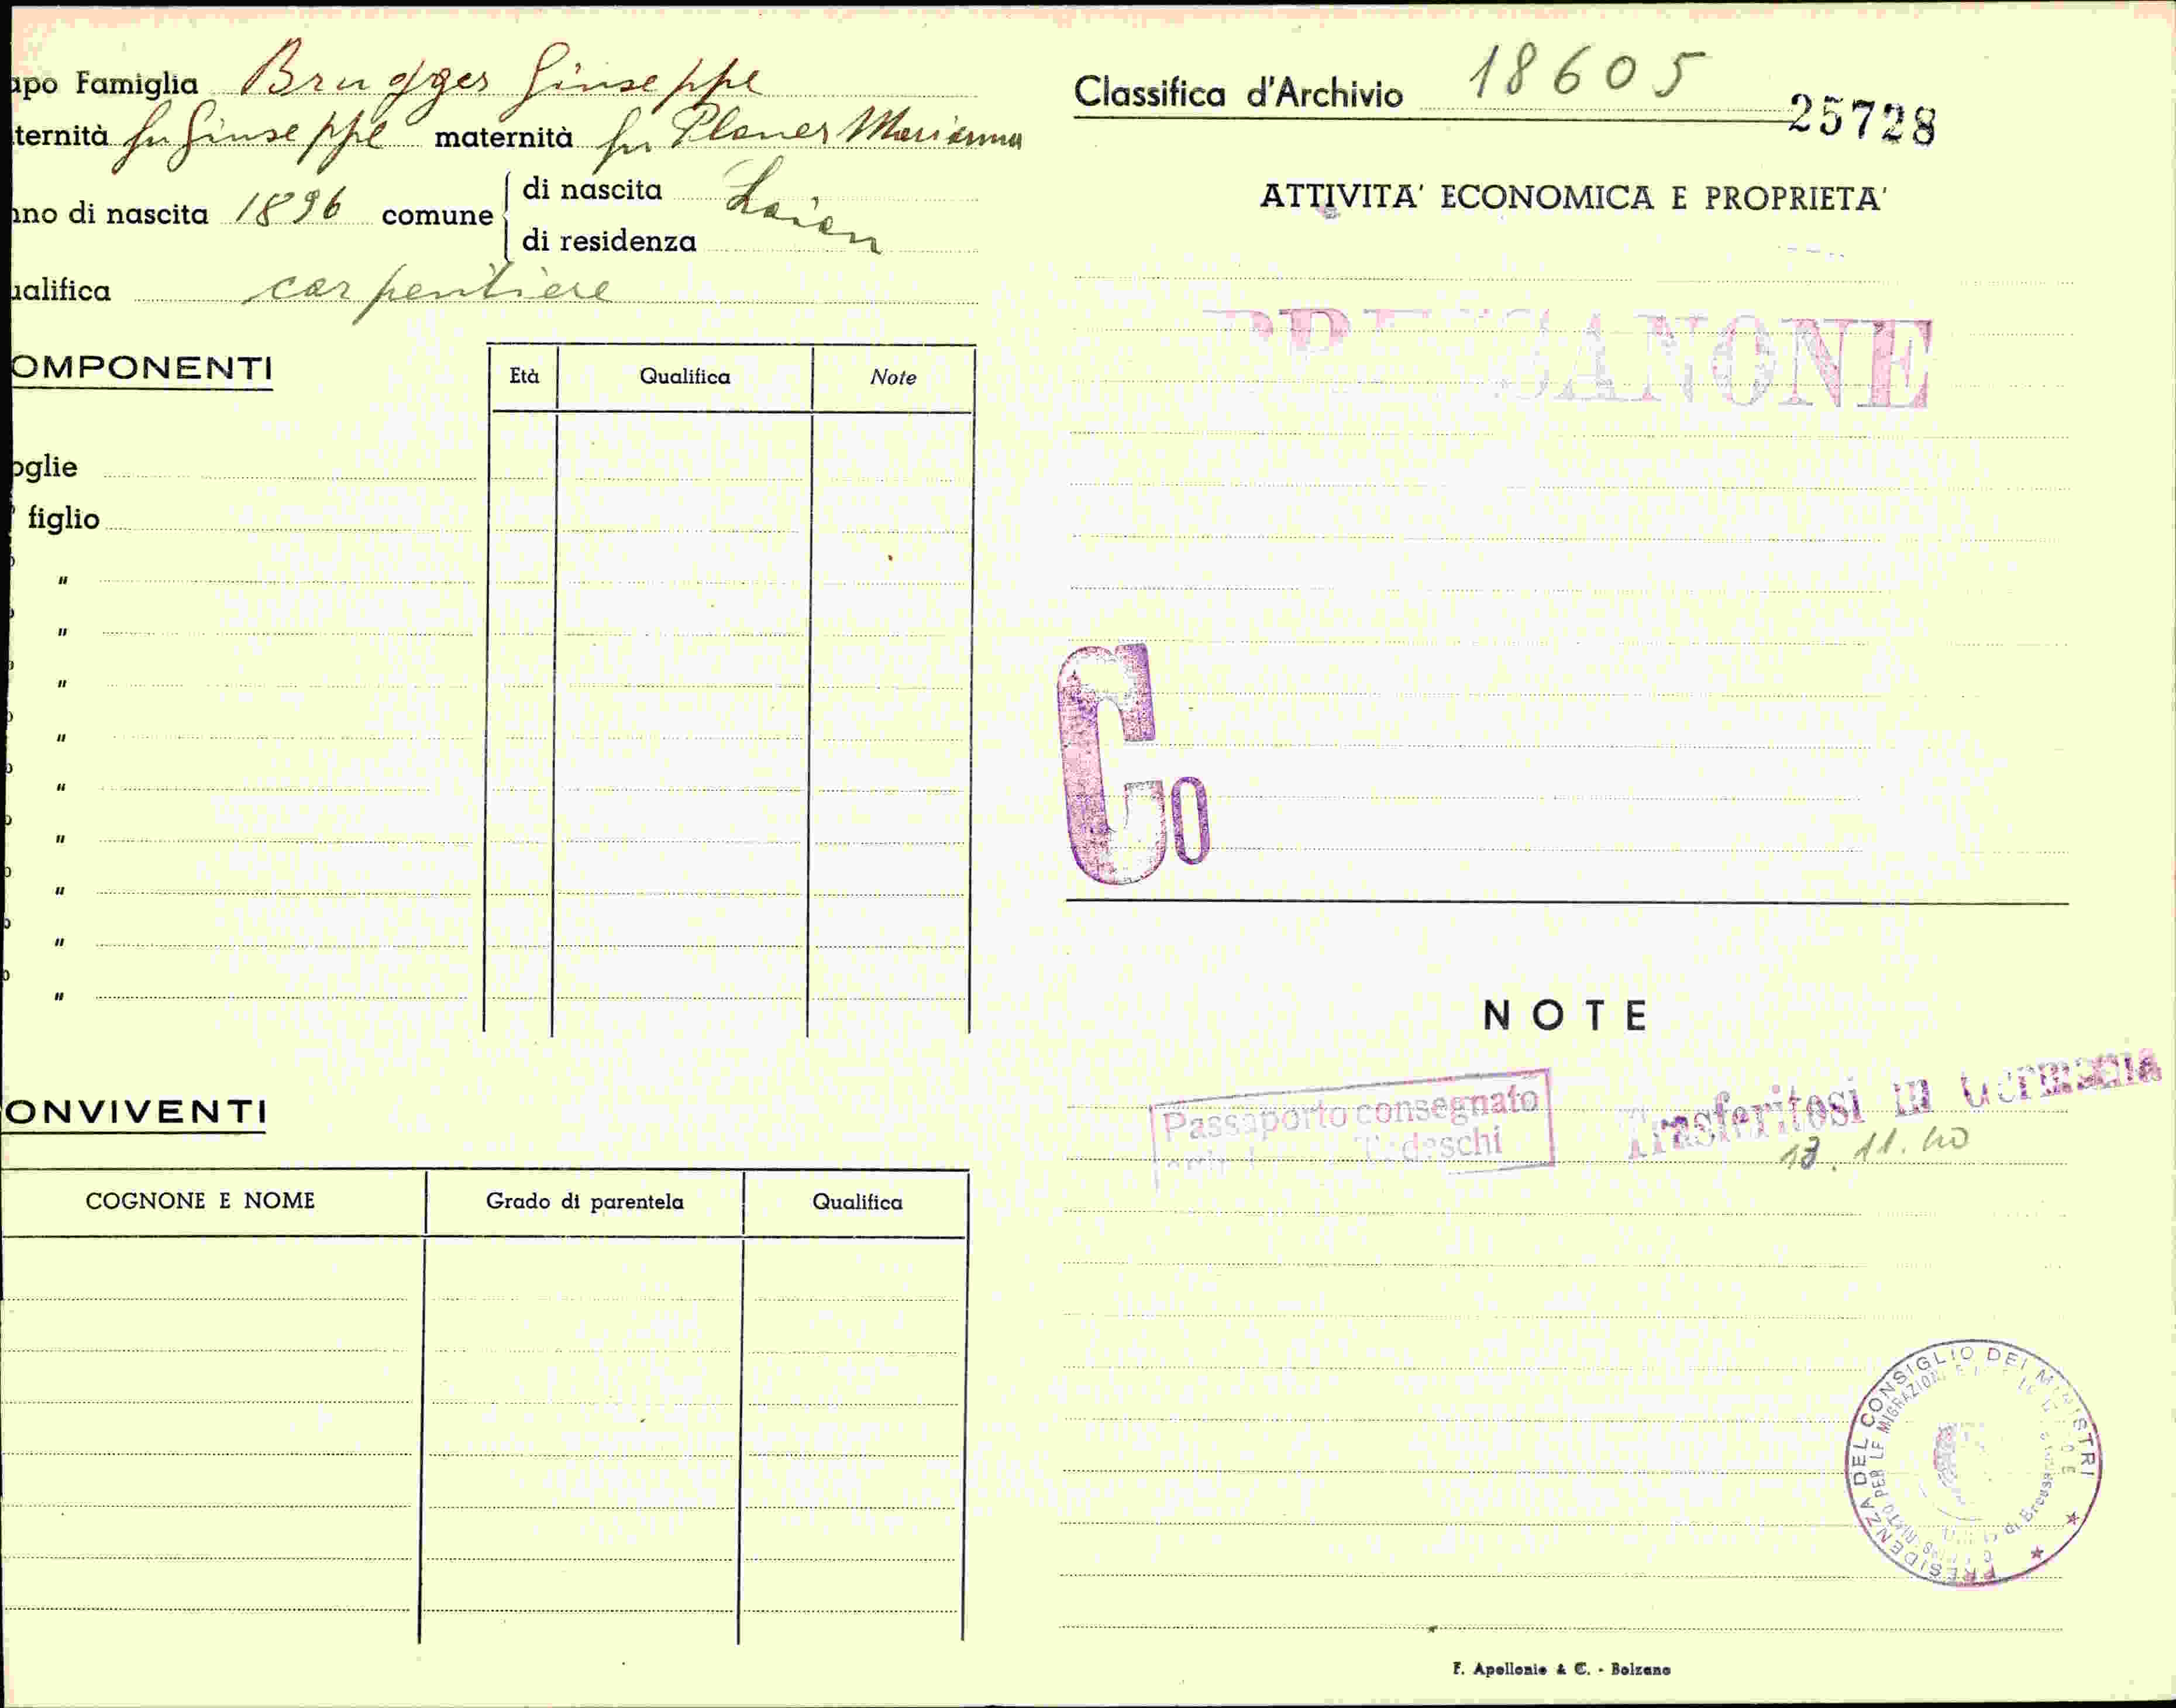 apo Famiglia Brugger Giuseppe
ternità fu Giuseppe maternità fu Planer Marianna
nno di nascita 1896 comune di nascita Laion
di residenza
ualifica carpentiere
OMPONENTI
Età Qualifica Note
oglie
figlio
"
"
"
"
"
"
"
"
"
ONVIVENTI
COGNONE E NOME Grado di parentela Qualifica
Classifica d'Archivio 18605
25728
ATTIVITA' ECONOMICA E PROPRIETA'
BRESSANONE
Co
NOTE
Passaporto consegnato
Tedeschi
Trasferitosi in Germania
13.11.40
PRESIDENZA DEL CONSIGLIO DEI MINISTRI
PER LE MIGRAZIONI
di Bressanone
F. Apollonio & C. - Bolzano